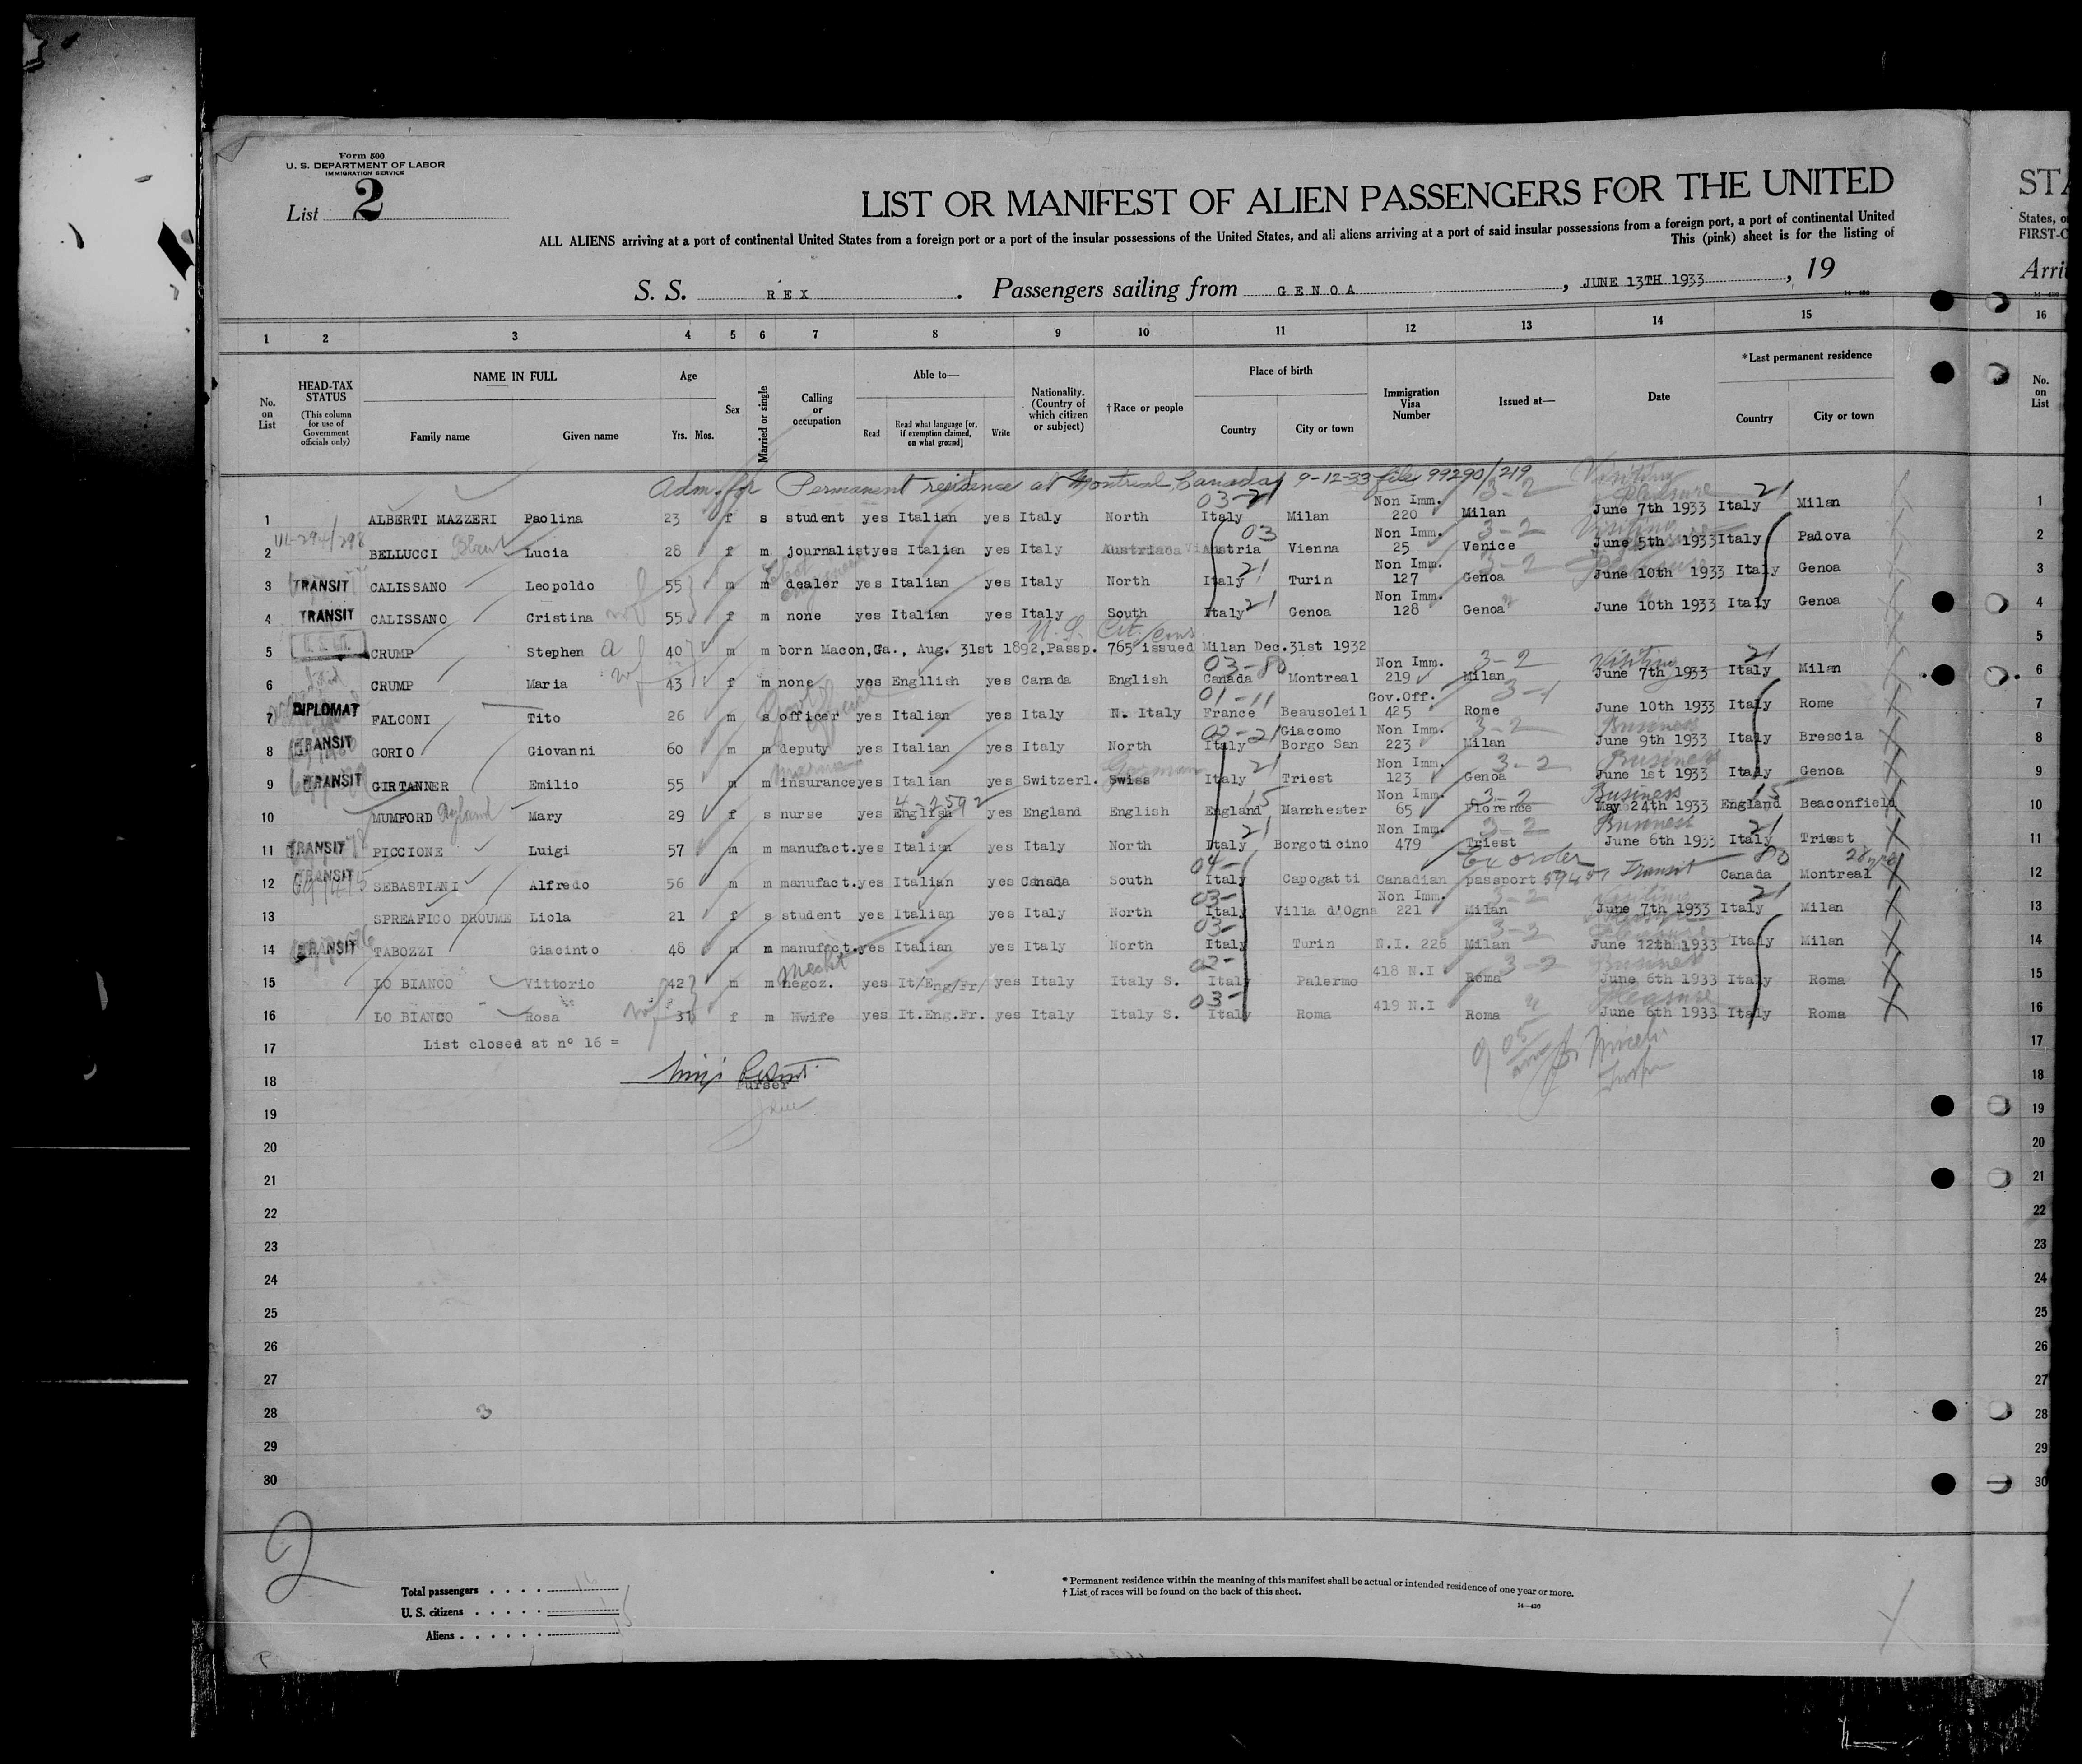 Form 500
U. S. DEPARTMENT OF LABOR
IMMIGRATION SERVICE
List 2
LIST OR MANIFEST OF ALIEN PASSENGERS FOR THE UNITED
ALL ALIENS arriving at a port of continental United States from a foreign port or a port of the insular possessions of the United States, and all aliens arriving at a port of said insular possessions from a foreign port, a port of continental United
This (pink) sheet is for the listing of
S. S. REX. Passengers sailing from GENOA, JUNE 13TH 1933, 19
14—430
1 2 3 4 5 6 7 8 9 10 11 12 13 14 15
No. on List
HEAD-TAX STATUS
(This column for use of Government officials only)
NAME IN FULL
Family name Given name
Age
Yrs. Mos.
Sex
Married or single
Calling or occupation
Able to—
Read Read what language [or, if exemption claimed, on what ground] Write
Nationality. (Country of which citizen or subject)
†Race or people
Place of birth
Country City or town
Immigration Visa Number
Issued at—
Date
*Last permanent residence
Country City or town
Adm. for Permanent residence at Montreal, Canada, 9-12-33 file 99290/219
1 ALBERTI MAZZERI Paolina 23 f s student yes Italian yes Italy North Italy 03-21 Milan Non Imm. 220 Milan 3-2 June 7th 1933 Visiting Pleasure Italy 21 Milan 1
2 BELLUCCI Lucia 28 f m journalist yes Italian yes Italy Austriaca Austria 03 Vienna Non Imm. 25 Venice 3-2 June 5th 1933 Visiting Italy Padova 2
3 TRANSIT CALISSANO Leopoldo 55 m m dealer yes Italian yes Italy North Italy 21 Turin Non Imm. 127 Genoa 3-2 June 10th 1933 Pleasure Italy Genoa 3
4 TRANSIT CALISSANO Cristina wf 55 f m none yes Italian yes Italy South Italy 21 Genoa Non Imm. 128 Genoa June 10th 1933 Italy Genoa 4
U. S. Cit.
5 CRUMP Stephen 40 m m born Macon, Ga., Aug. 31st 1892, Passp. 765 issued Milan Dec. 31st 1932 5
6 CRUMP Maria wf 43 f m none yes Engllish yes Canada English Canada 03-80 Montreal Non Imm. 219 Milan 3-2 June 7th 1933 Visiting Italy 21 Milan 6
7 DIPLOMAT FALCONI Tito 26 m s officer Govt Official yes Italian yes Italy N. Italy France 01-11 Beausoleil Gov.Off. 425 Rome 3-1 June 10th 1933 Italy Rome 7
8 TRANSIT GORIO Giovanni 60 m m deputy yes Italian yes Italy North Italy 02-21 Giacomo Borgo San Non Imm. 223 Milan 3-2 June 9th 1933 Business Italy Brescia 8
9 TRANSIT GIRTANNER Emilio 55 m m insurance yes Italian yes Switzerl. Swiss German Italy 21 Triest Non Imm. 123 Genoa 3-2 June 1st 1933 Business Italy Genoa 9
10 MUMFORD Ryland Mary 29 f s nurse yes English yes England English England 15 Manchester Non Imm. 65 Florence 3-2 May 24th 1933 Business England 15 Beaconfield 10
11 TRANSIT PICCIONE Luigi 57 m m manufact. yes Italian yes Italy North Italy 21 Borgoticino Non Imm. 479 Triest 3-2 June 6th 1933 Business Italy 21 Triest 11
12 TRANSIT SEBASTIANI Alfredo 56 m m manufact. yes Italian yes Canada South Italy 04- Capogatti Canadian passport 59457 Transit Canada 80 Montreal 12
13 SPREAFICO DROUME Liola 21 f s student yes Italian yes Italy North Italy 03- Villa d'Ogna Non Imm. 221 Milan 3-2 June 7th 1933 Visiting Italy 21 Milan 13
14 TRANSIT TABOZZI Giacinto 48 m m manufact. yes Italian yes Italy North Italy 03- Turin N.I. 226 Milan 3-2 June 12th 1933 Pleasure Italy Milan 14
15 LO BIANCO Vittorio 42 m m negoz. Mecht yes It/Eng/Fr/ yes Italy Italy S. Italy 02- Palermo 418 N.I Roma 3-2 June 6th 1933 Business Italy Roma 15
16 LO BIANCO Rosa wf 31 f m Hwife yes It.Eng.Fr. yes Italy Italy S. Italy 03- Roma 419 N.I Roma June 6th 1933 Pleasure Italy Roma 16
17 List closed at n° 16 = 17
18 Purser 18
19 19
20 20
21 21
22 22
23 23
24 24
25 25
26 26
27 27
28 3 28
29 29
30 30
2
Total passengers . . . . 16
U. S. citizens . . . . . 1
Aliens . . . . . . 15
* Permanent residence within the meaning of this manifest shall be actual or intended residence of one year or more.
† List of races will be found on the back of this sheet.
14—430
STA
States, o
FIRST-C
Arri
16
No. on List